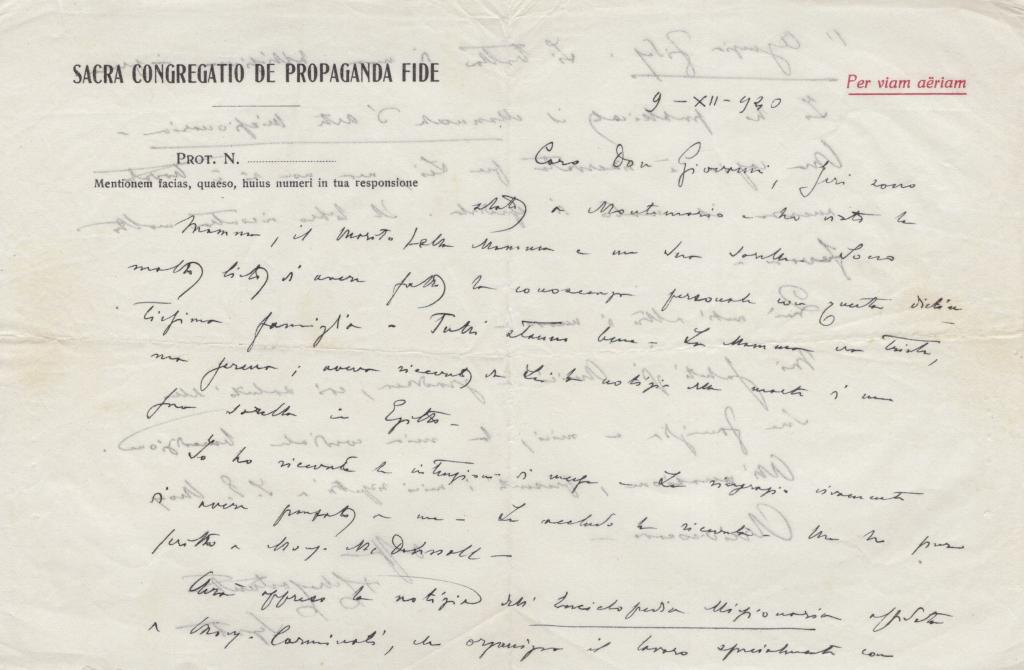 SACRA CONGREGATIO DE PROPAGANDA FIDE
Per viam aëriam
9 - XII - 930
PROT. N.
Mentionem facias, quaeso, huius numeri in tua responsione
Caro Don Giovanni, Ieri sono
stato a Montemario e ho visto la
Mamma, il marito della Mamma e una sua sorella. Sono
molto lieto di avere fatto la conoscenza personale con questa distin-
tissima famiglia - Tutti stanno bene - La Mamma era triste,
ma serena; aveva ricevuto da Lei la notizia della morte di una
sua sorella in Egitto -
Io ho ricevuto le intenzioni di messe - La ringrazio vivamente
di avere pensato a me - Le accludo la ricevuta - Ne ho pure
scritto a Mons.
Avrà appreso la notizia dell'Enciclopedia Missionaria affidata
a Mons. Carminati, che organizza il lavoro specialmente con